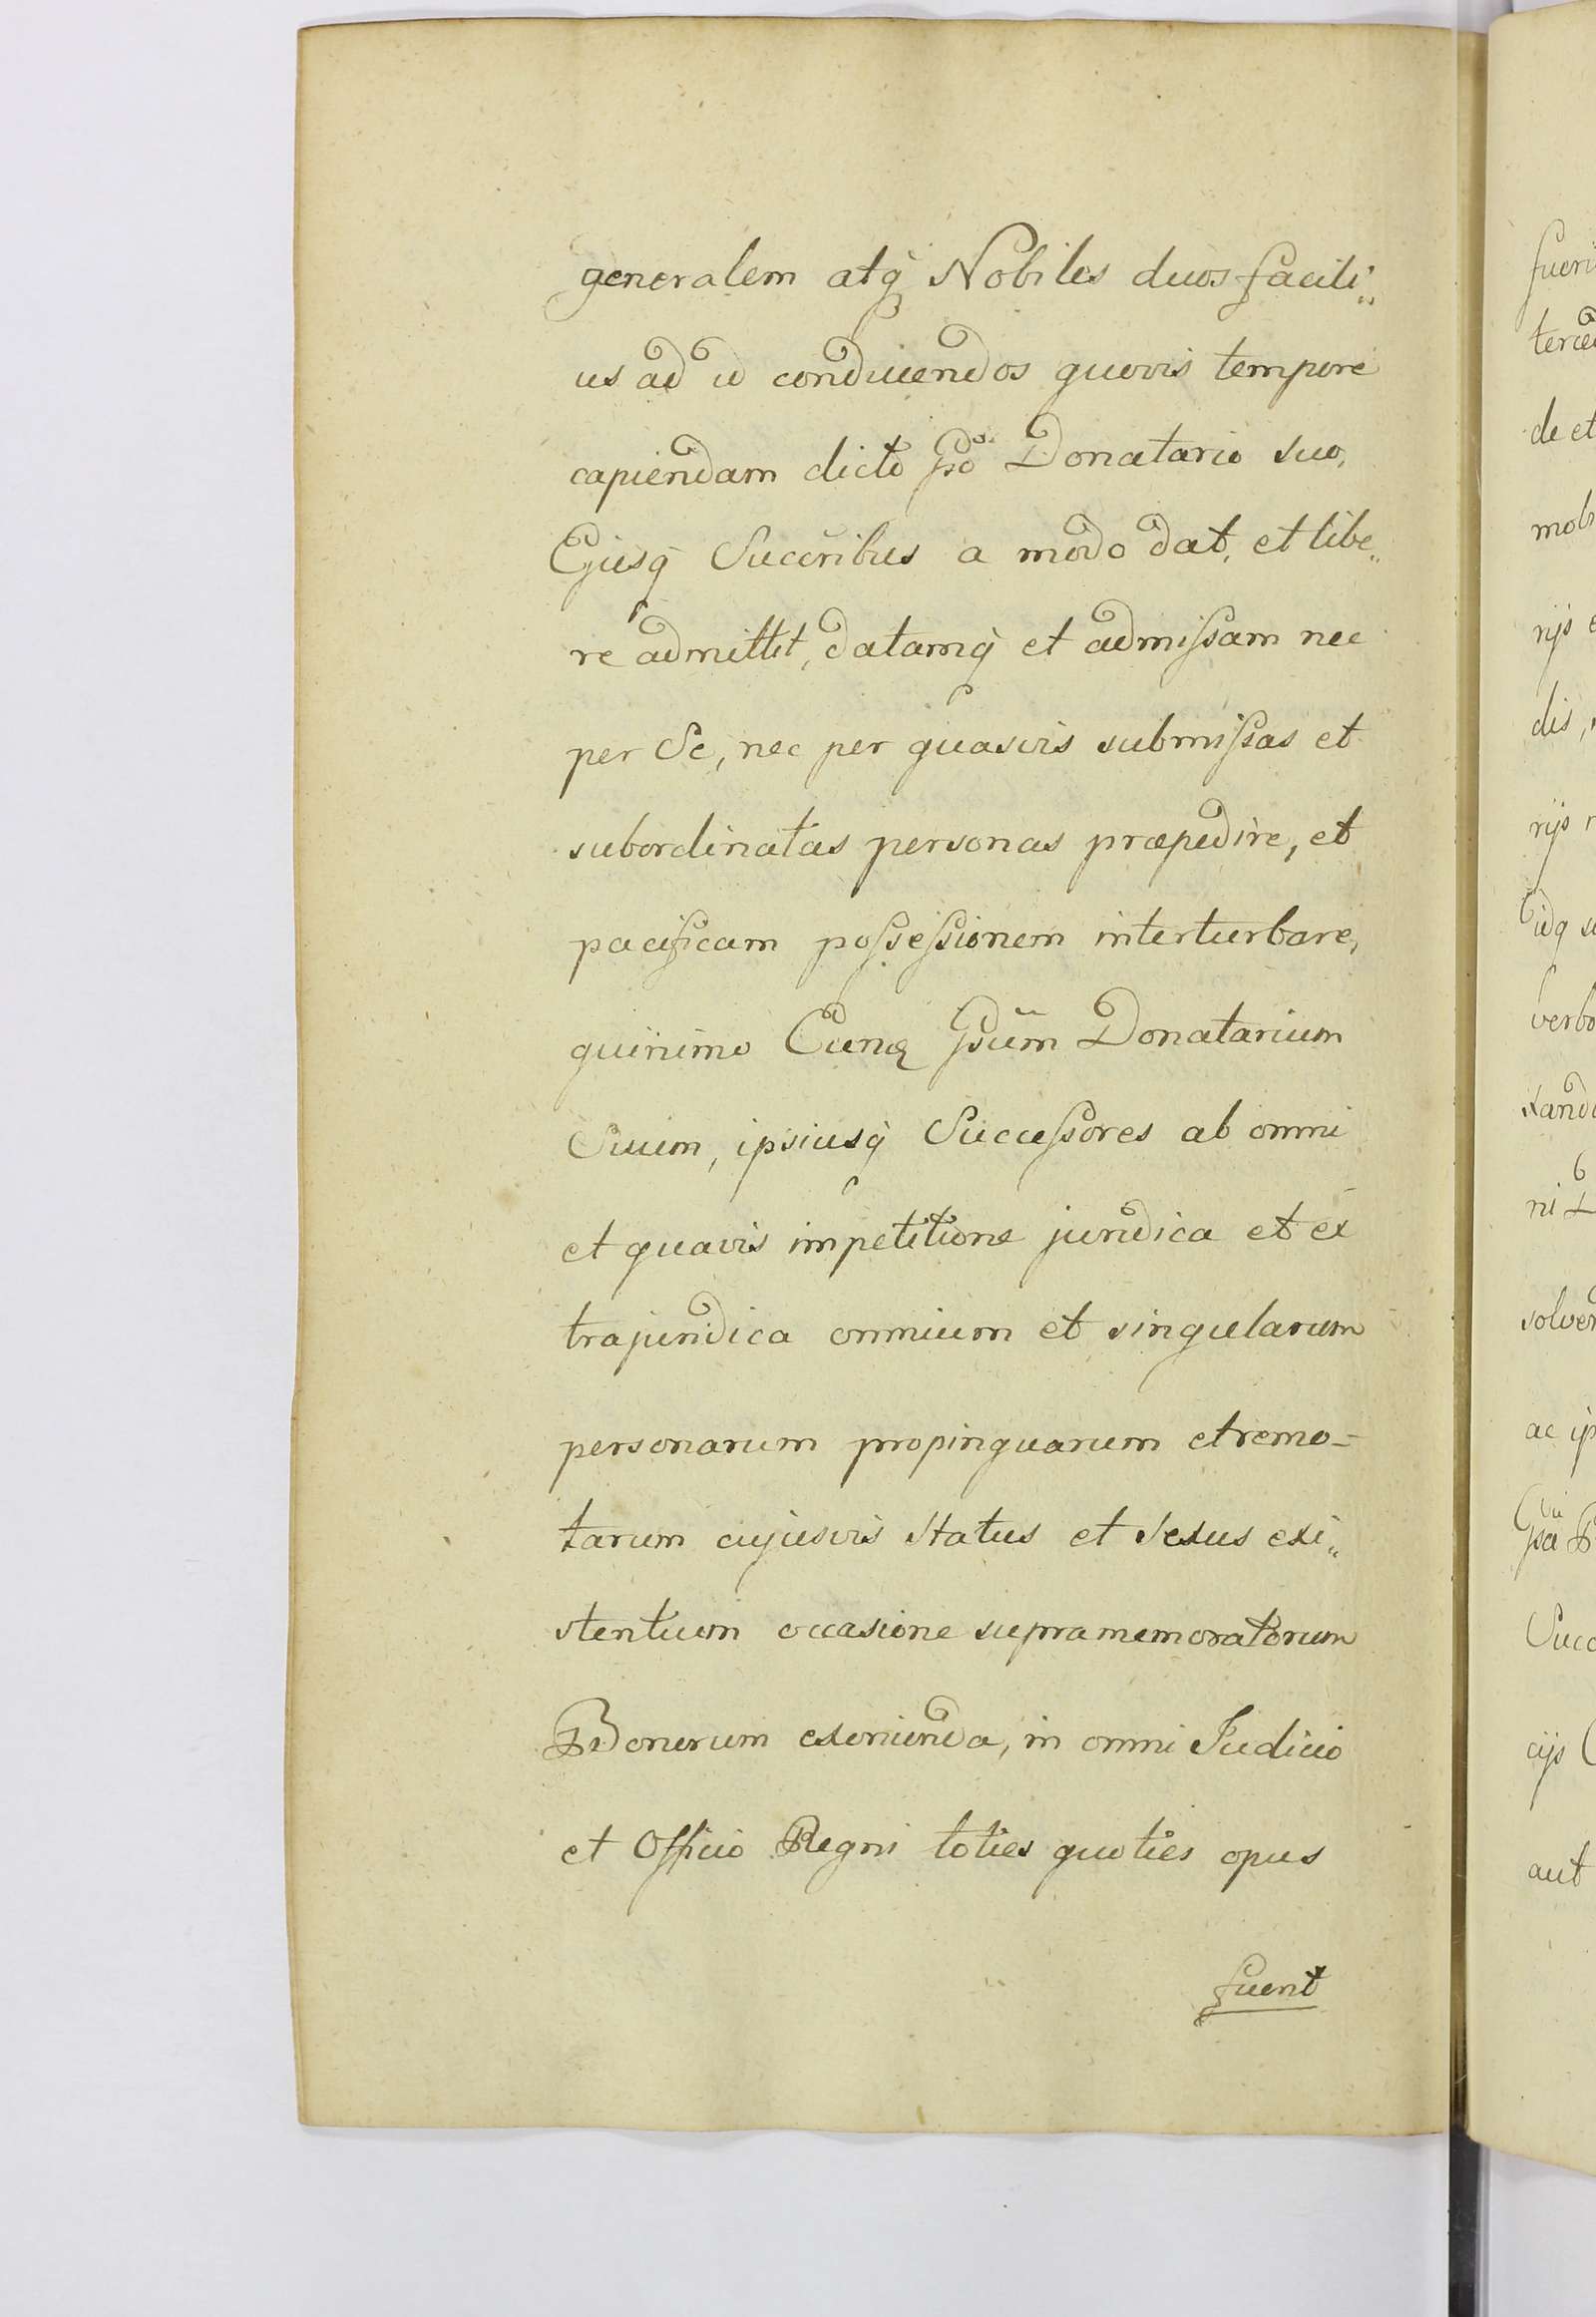 generalem atq̀ Nobiles duos facili„
us ad id conducendos quovis tempore
capiendam dicto Gso Donatario suo,
Ejusq̀ Succeribus a modo dat, et libe„
re admittit, datamq̀ et admissam nec
per Se, nec per quasvis submissas et
subordinatas personas præpedire, et
pacificam possessionem interturbare,
quinimo Eunq Gsum Donatarium
Suum, ipsiusq̀ Successores ab omni
et quavis impetitione juridica et ex
trajuridica omnium et singularum
personarum propinquarum et remo=
tarum cujusvis Status et Sexus exi„
stentium occasione supramemoratorum
Bonorum exorienda, in omni Judicio
et Officio Regni toties quoties opus
fuerit
de et
dis,
solven
aut